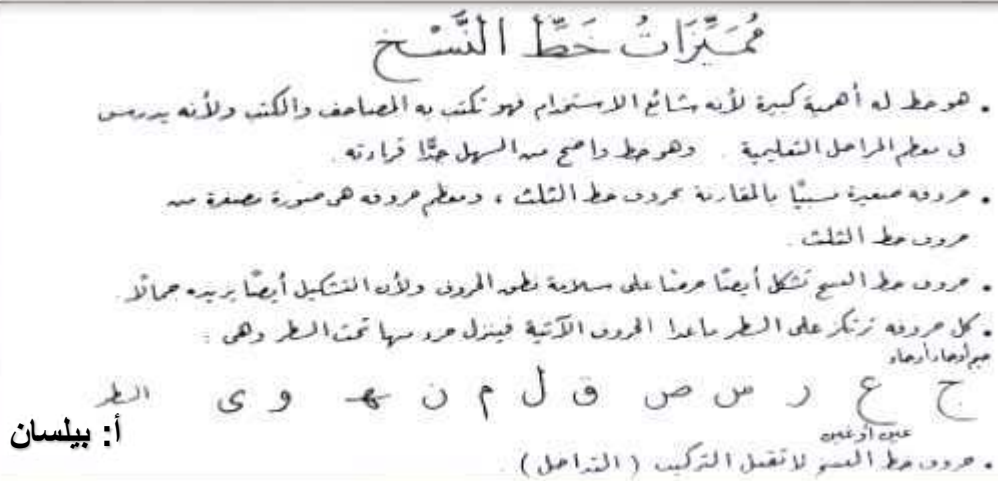 مُمَيِّزَاتُ خَطِّ النَّسْخ
• هو خط له أهمية كبيرة لأنه شائع الاستخدام فهو تكتب به المصاحف والكتب ولأنه يدرس
فى معظم المراحل التعليمية . وهو خط واضح من السهل جدًّا قراءته .
• حروفه صغيرة نسبيًّا بالمقارنة بحروف خط الثلث ، ومعظم حروفه هى صورة مصغرة من
حروف خط الثلث .
• حروف خط النسخ تشكل أيضًا حرصًا على سلامة نطق الحروف ولأن التشكيل أيضًا يزيده جمالًا .
• كل حروفه ترتكز على السطر ماعدا الحروف الآتية فينزل جزء منها تحت السطر وهى :
جيم أوحاء أوخاء
ج ع ر س ص ق ل م ن ه و ى السطر
عين أو غين
أ: بيلسان
• حروف خط النسخ لا تقبل التركيب ( التداخل ) .